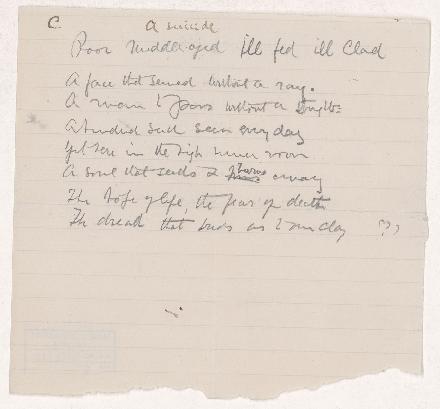 C
A suicide
Poor middle-aged ill fed ill clad
A face that seemed without a ray.
A man to pass without a
A hundred such seen every day
Yet here in the
A soul that
The hope of life, the fear of death
The dread that binds us to our clay ??